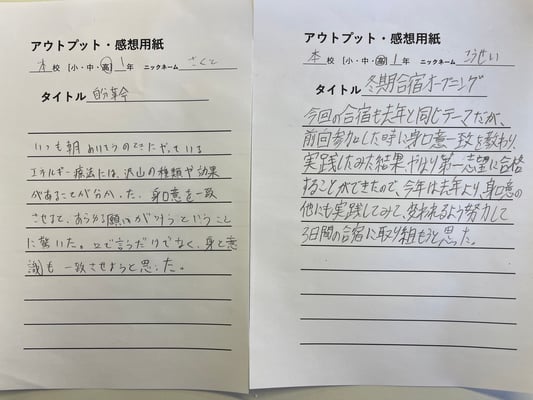 アウトプット・感想用紙
本校 [小・中・高] 1年 ニックネーム さくと
タイトル 自分革命
いつも朝ありそうのでにやっている
エネルギー療法には、沢山の種類や効果
があることが分かった。身口意を一致
させると、あらゆる願いが叶うということ
に驚いた。口で言うだけでなく、身と意
識も一致させようと思った。
アウトプット・感想用紙
本校 [小・中・高] 1年 ニックネーム こうせい
タイトル 冬期合宿オープニング
今回の合宿も去年と同じテーマだが、
前回参加した時に身口意一致を教わり、
実践してみた結果、やはり第一志望に合格
することができたので、今年は去年より、身口意の
他にも実践してみて、変われるよう努力して
3日間の合宿に取り組もうと思った。